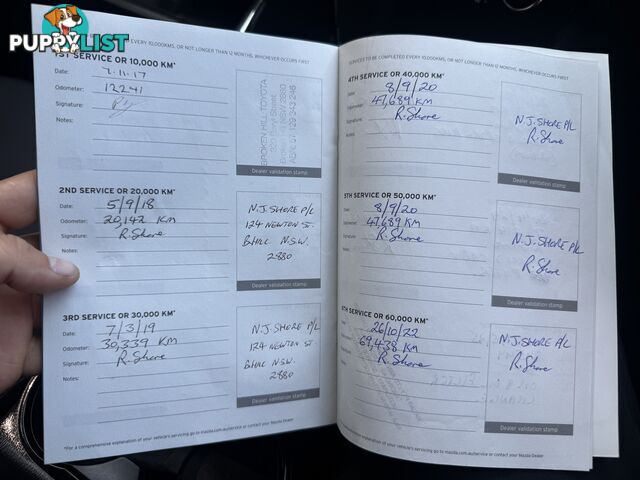 PUPPYLIST
SERVICES TO BE COMPLETED EVERY 10,000KMS, OR NOT LONGER THAN 12 MONTHS, WHICHEVER OCCURS FIRST
1ST SERVICE OR 10,000 KM*
Date: 7.11.17
Odometer: 12241
Signature:
Notes:
BROKEN HILL TOYOTA
Dealer validation stamp
2ND SERVICE OR 20,000 KM*
Date: 5/9/18
Odometer: 20,142 KM
Signature: R. Shore
Notes:
N.J. SHORE P/L
124 NEWTON ST.
B/HILL N.S.W.
2880
Dealer validation stamp
3RD SERVICE OR 30,000 KM*
Date: 7/3/19
Odometer: 30,339 KM
Signature: R. Shore
Notes:
N.J. SHORE P/L
124 NEWTON ST
B/HILL NSW.
2880
Dealer validation stamp
*For a comprehensive explanation of your vehicle's servicing go to mazda.com.au/service or contact your Mazda Dealer
SERVICES TO BE COMPLETED EVERY 10,000KMS, OR NOT LONGER THAN 12 MONTHS, WHICHEVER OCCURS FIRST
4TH SERVICE OR 40,000 KM*
Date: 8/9/20
Odometer: 47,689 KM
Signature: R. Shore
Notes:
N.J. SHORE P/L
R. Shore
Dealer validation stamp
5TH SERVICE OR 50,000 KM*
Date: 8/9/20
Odometer: 47,689 KM
Signature: R. Shore
Notes:
N.J. SHORE P/L
R. Shore
Dealer validation stamp
6TH SERVICE OR 60,000 KM*
Date: 26/10/22
Odometer: 69,438 KM
Signature: R. Shore
Notes:
N.J. SHORE P/L
R. Shore
Dealer validation stamp
*For a comprehensive explanation of your vehicle's servicing go to mazda.com.au/service or contact your Mazda Dealer